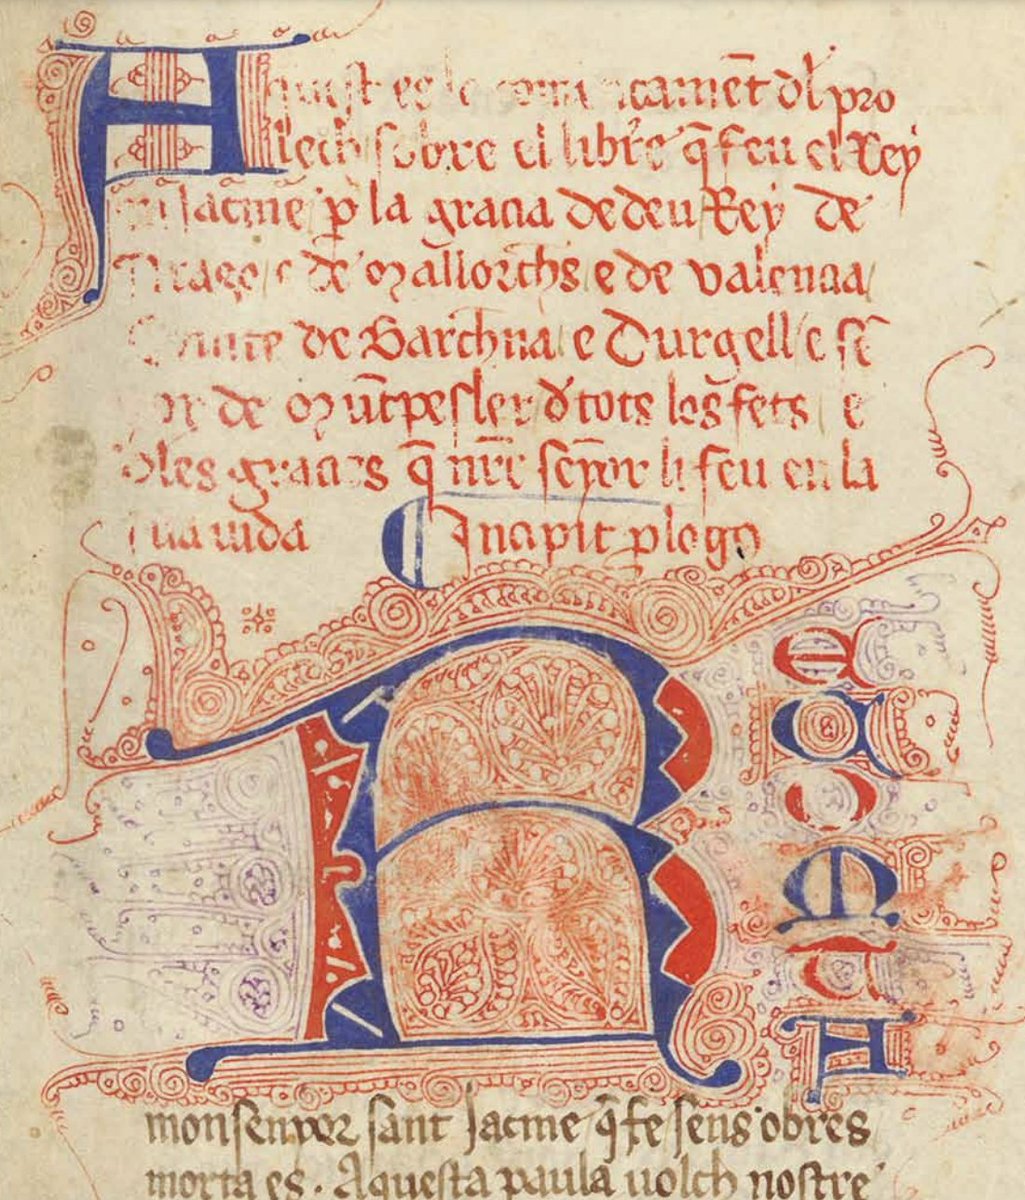 Aquest es lo comencament dl pro
lech sobre el libre q̃ feu el Rey
en Jacme p̱ la gracia de deu Rey de
Arago e de Mallorchs e de valencia
Comte de Barchna e Durgell e sẽ
yor de Mũtpesler d̓ tots los fets e
d̓les gracies q̃ nr̃e senyor li feu en la
sua vida Incipit p̱logo
RECOMTA
monsenyor sant Jacme q̃ fe sens obres
morta es. Aquesta paula volch nostre